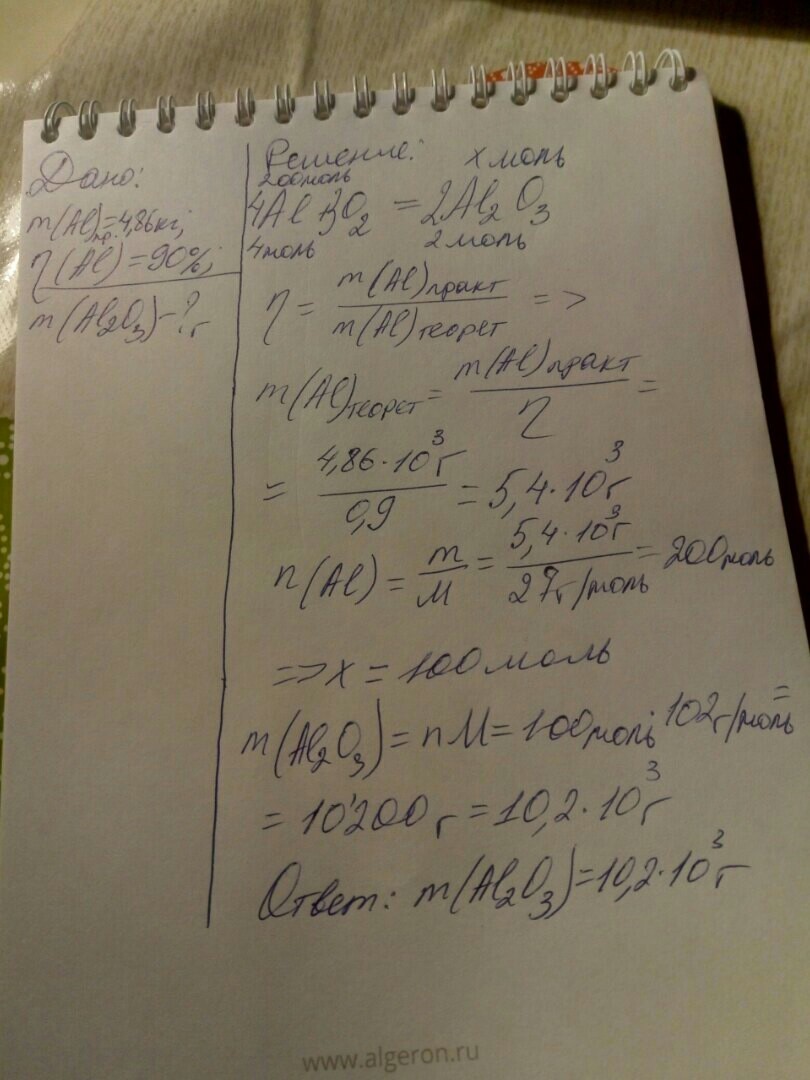 Дано:
m(Al)пр.=4,86кг;
η(Al)=90%;
m(Al₂O₃)-?г
Решение:
200моль x моль
4Al+3O₂=2Al₂O₃
4моль 2моль
η=m(Al)практ/m(Al)теорет=>
m(Al)теорет=m(Al)практ/η=
=4,86·10³г/0,9=5,4·10³г
n(Al)=m/M=5,4·10³г/27г/моль=200моль
=>x=100моль
m(Al₂O₃)=nM=100моль·102г/моль=
=10'200г=10,2·10³г
Ответ: m(Al₂O₃)=10,2·10³г
www.algeron.ru